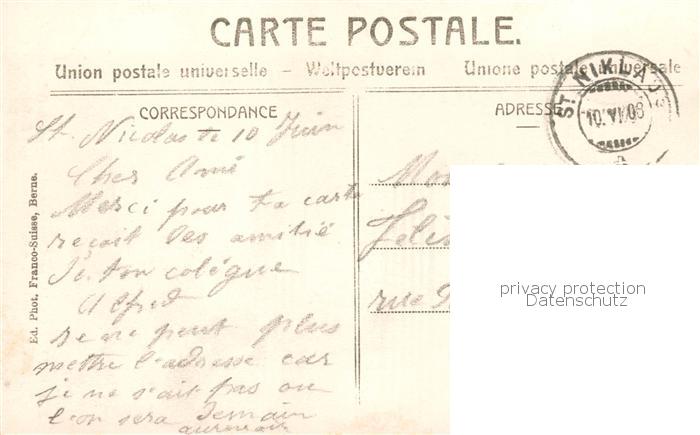 CARTE POSTALE.
Union postale universelle – Weltpostverein Unione postale universale
CORRESPONDANCE
ADRESSE
ST. NIKLAUS
10.VI.08
St. Nicolas le 10 Juin
Cher Ami
Merci pour ta carte
reçoit les amitié
de ton colègue
Alfred
Je ne peut plus
mettre l'adresse car
je ne sait pas ou
l'on sera demain
aurevoir
rue
Ed. Phot. Franco-Suisse, Berne.
privacy protection
Datenschutz